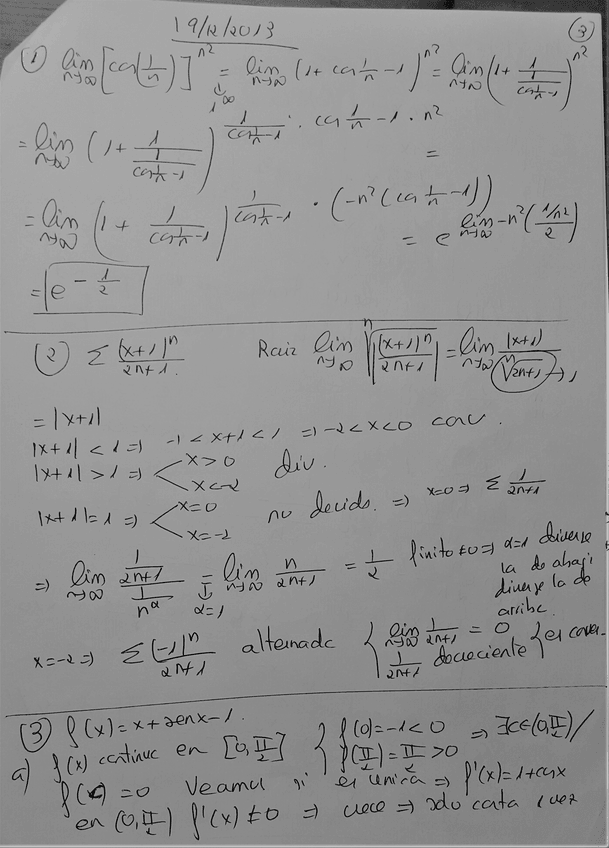 19/12/2013
③
① lim n→∞ [cos(1/n)]^n² = 1^∞ lim n→∞ (1 + cos 1/n − 1)^n² = lim n→∞ (1 + 1/(1/(cos 1/n − 1)))^n²
= lim n→∞ (1 + 1/(1/(cos 1/n − 1)))^(1/(cos 1/n − 1)) · cos 1/n − 1 · n² =
= lim n→∞ (1 + 1/(1/(cos 1/n − 1)))^(1/(cos 1/n − 1)) · (−n²(cos 1/n − 1)) = e^(lim n→∞ −n²((1/n²)/2))
= e^(−1/2)
② Σ (x+1)^n/(2n+1) Raiz lim n→∞ ⁿ√(|(x+1)^n|/(2n+1)) = lim n→∞ |x+1|/ⁿ√(2n+1) → 1
= |x+1|
|x+1| < 1 ⇒ −1 < x+1 < 1 ⇒ −2 < x < 0 conv.
|x+1| > 1 ⇒ x > 0 div.
x < −2
|x+1| = 1 ⇒ x = 0 no decide. ⇒ x=0 ⇒ Σ 1/(2n+1)
x = −2
⇒ lim n→∞ (1/(2n+1))/(1/n^α) = α=1 lim n→∞ n/(2n+1) = 1/2 finito ≠0 ⇒ α=1 diverge
la de abajo
diverge la de
arriba.
x=−2 ⇒ Σ (−1)^n/(2n+1) alternada { lim n→∞ 1/(2n+1) = 0 } es conver.
1/(2n+1) decreciente
③ f(x) = x + sen x − 1.
a) f(x) continua en [0, π/2] } f(0) = −1 < 0 ⇒ ∃c∈(0, π/2)/
f(π/2) = π/2 > 0
f(c) = 0 Veamos si es única ⇒ f'(x) = 1 + cos x
en (0, π/2) f'(x) ≠ 0 ⇒ crece ⇒ solo corta 1 vez